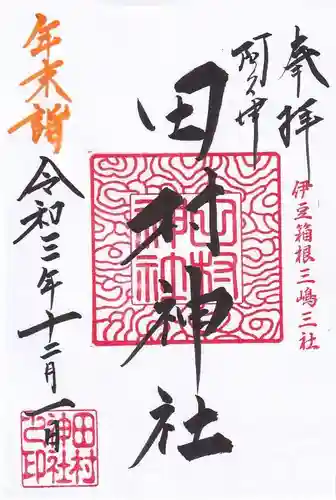 奉拝
伊豆箱根三嶋三社
阿久津
田村神社
年末詣
令和三年十二月一日
田村神社
田村神社之印